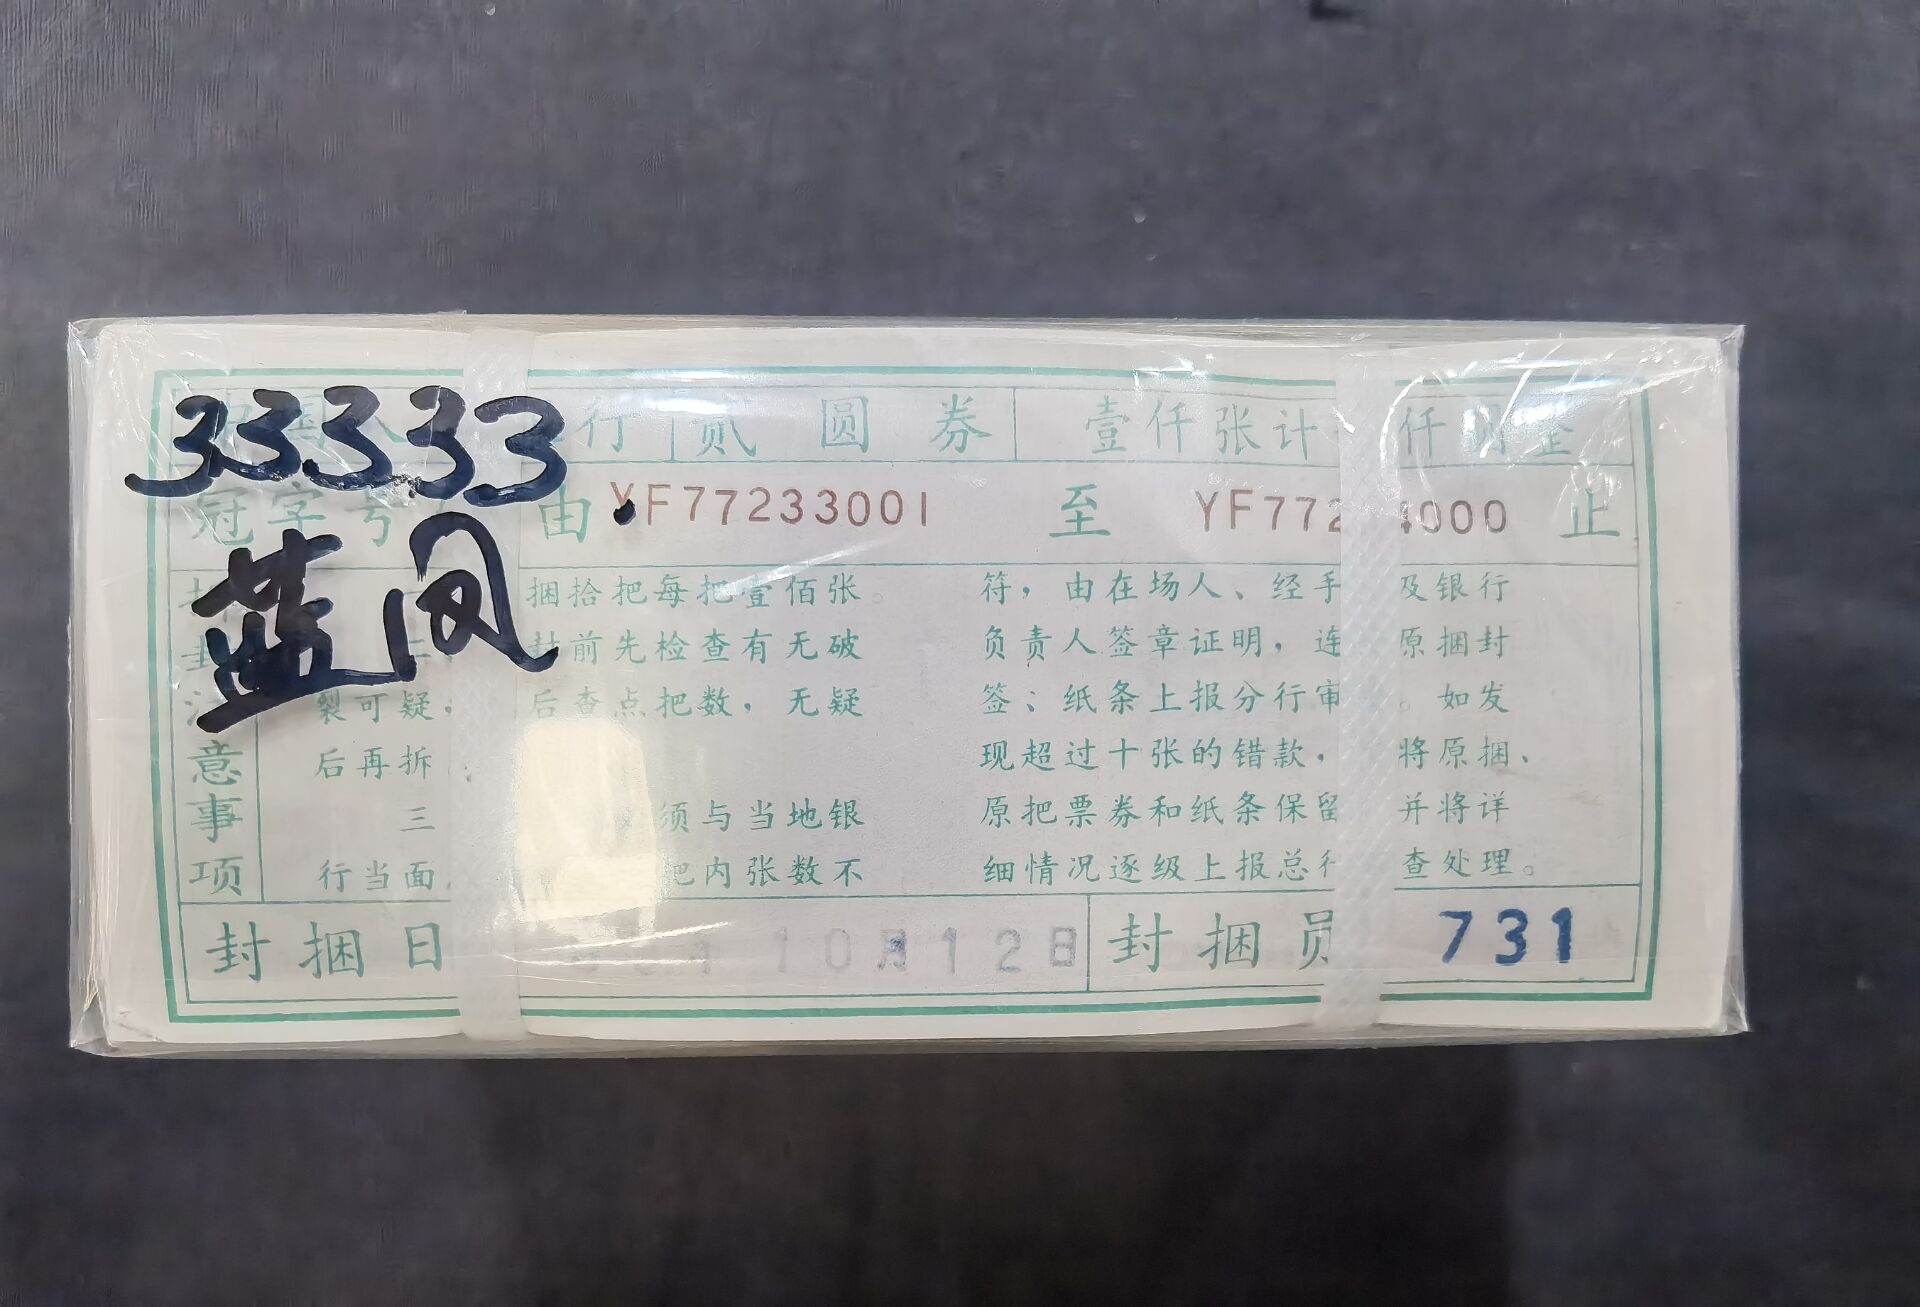 33333
蓝凤
行 贰圆券 壹仟张计 仟
冠字号 由 YF77233001 至 YF772 4000 止
捆拾把每把壹佰张。
封前先检查有无破
裂可疑, 后查点把数,无疑
后再拆
三 须与当地银
行当面 把内张数不
符,由在场人、经手 及银行
负责人签章证明,连 原捆封
签;纸条上报分行审 。如发
现超过十张的错款, 将原捆、
原把票券和纸条保留 并将详
细情况逐级上报总行 查处理。
意事项
封捆日 10月12日 封捆员 731